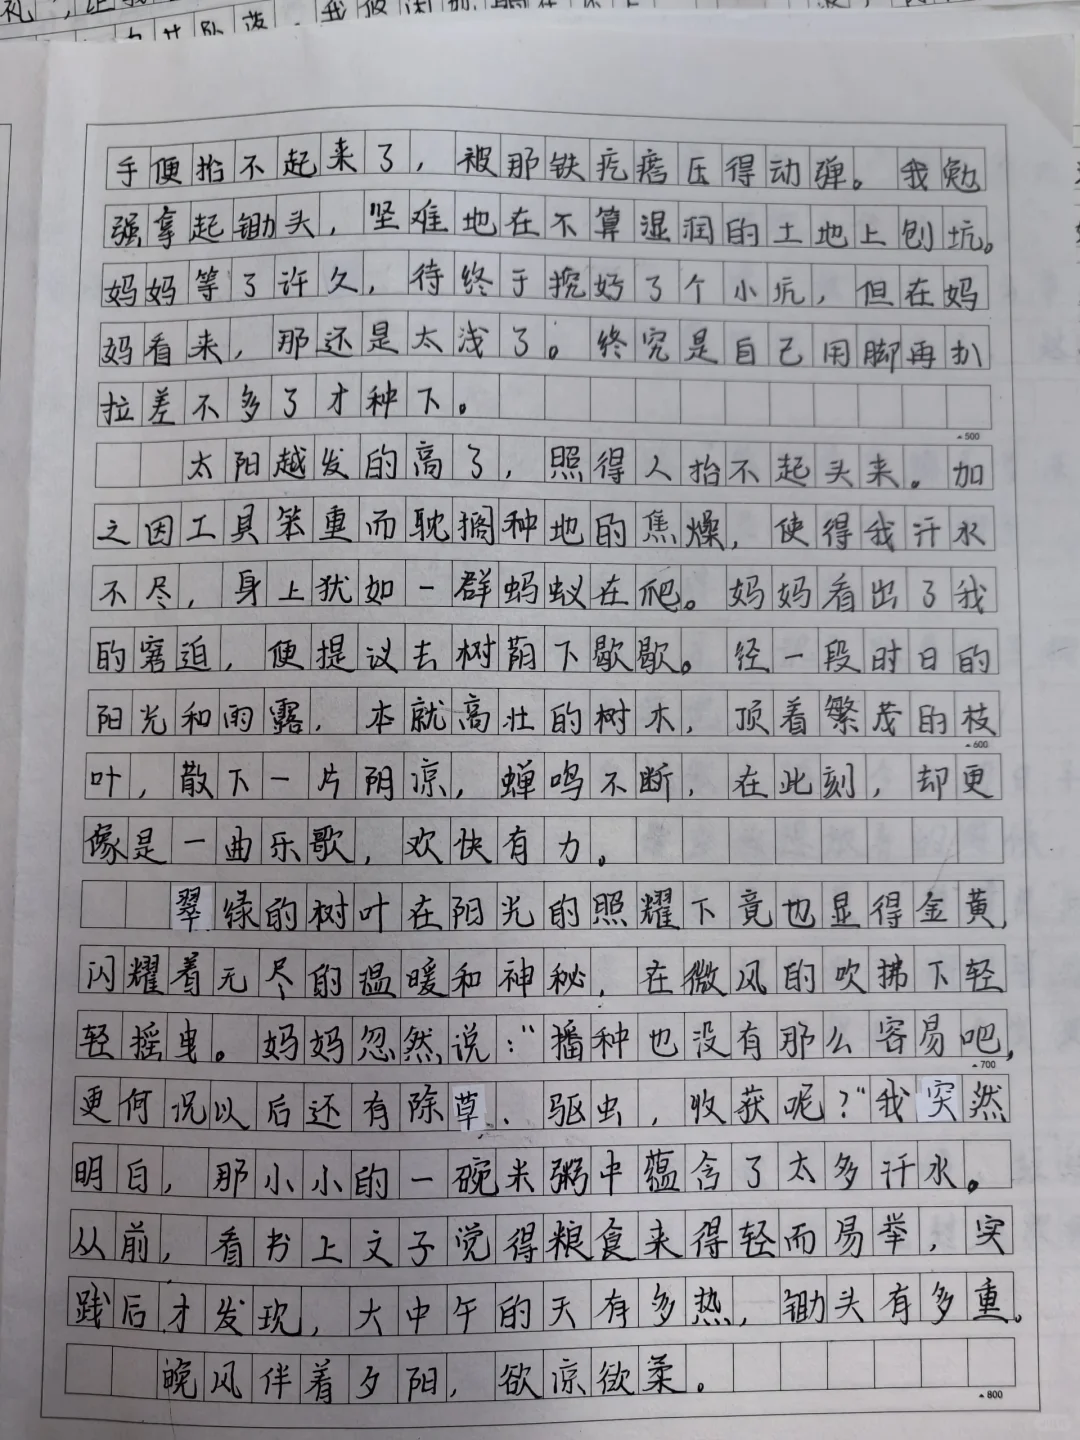 手便抬不起来了，被那铁疙瘩压得动弹。我勉
强拿起锄头，坚难地在不算湿润的土地上刨坑。
妈妈等了许久，待终于挖好了个小坑，但在妈
妈看来，那还是太浅了。终究是自己用脚再扒
拉差不多了才种下。
500
太阳越发的高了，照得人抬不起头来。加
之因工具笨重而耽搁种地的焦燥，使得我汗水
不尽，身上犹如一群蚂蚁在爬。妈妈看出了我
的窘迫，便提议去树荫下歇歇。经一段时日的
阳光和雨露，本就高壮的树木，顶着繁茂的枝
600
叶，散下一片阴凉，蝉鸣不断，在此刻，却更
像是一曲乐歌，欢快有力。
翠绿的树叶在阳光的照耀下竟也显得金黄，
闪耀着无尽的温暖和神秘，在微风的吹拂下轻
轻摇曳。妈妈忽然说：“播种也没有那么容易吧，
700
更何况以后还有除草、驱虫，收获呢？”我突然
明白，那小小的一碗米粥中蕴含了太多汗水。
从前，看书上文子觉得粮食来得轻而易举，实
践后才发现，大中午的天有多热，锄头有多重。
晚风伴着夕阳，欲凉欲柔。
800